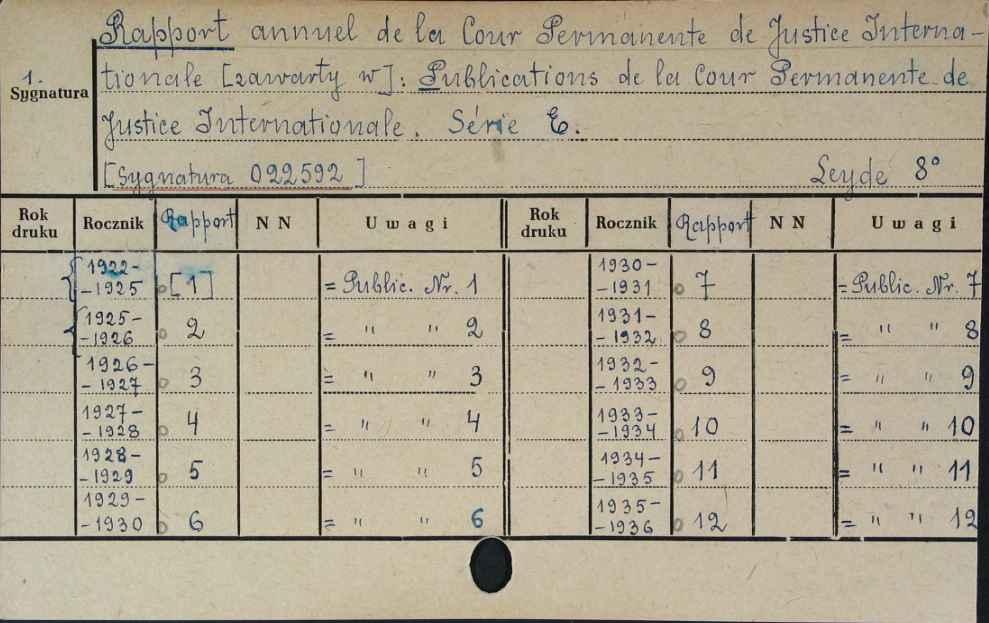 Rapport annuel de la Cour Permanente de Justice Interna-
1. tionale [zawarty w]: Publications de la Cour Permanente de
Sygnatura
Justice Internationale. Série E.
[Sygnatura 022592] Leyde 8°
Rok druku Rocznik Rapport NN Uwagi Rok druku Rocznik Rapport NN Uwagi
1922-
-1925 [1] = Public. Nr. 1
1930-
-1931 7 = Public. Nr. 7
1925-
-1926 2 = " " 2
1931-
-1932 8 = " " 8
1926-
-1927 3 = " " 3
1932-
-1933 9 = " " 9
1927-
-1928 4 = " " 4
1933-
-1934 10 = " " 10
1928-
-1929 5 = " " 5
1934-
-1935 11 = " " 11
1929-
-1930 6 = " " 6
1935-
-1936 12 = " " 12